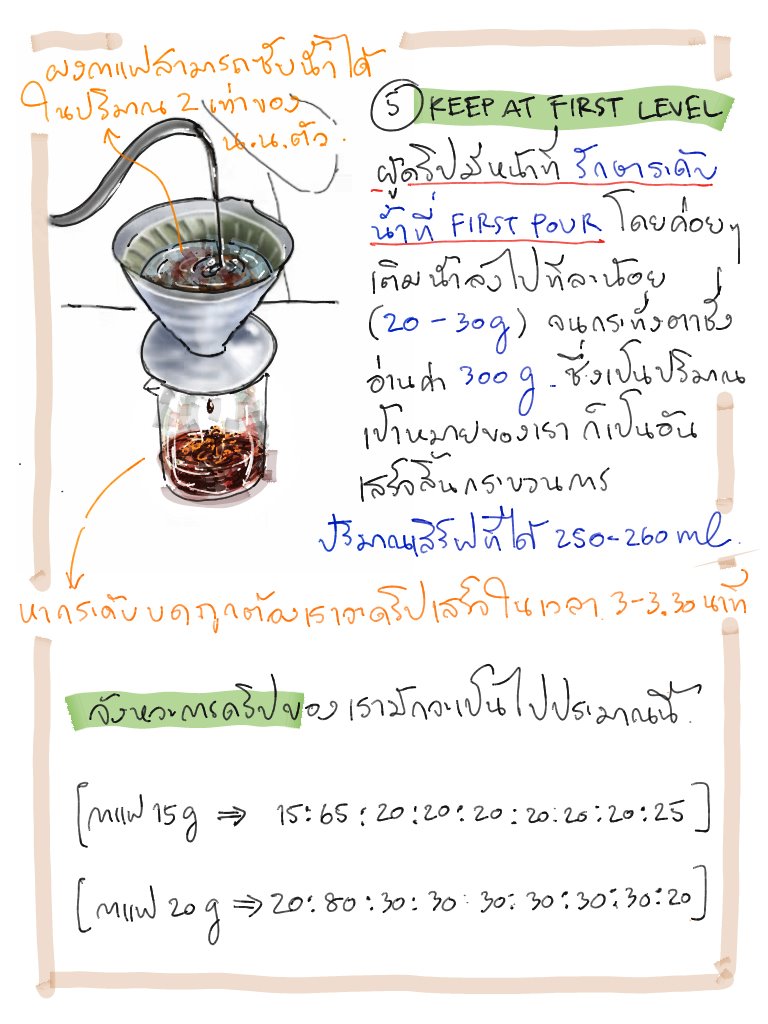 ผงกาแฟสามารถซับน้ำได้
ในปริมาณ 2 เท่าของ
น.น.ตัว.
⑤ KEEP AT FIRST LEVEL
ผู้ดริปมีหน้าที่ รักษาระดับ
น้ำที่ FIRST POUR โดยค่อยๆ
เติมน้ำลงไปทีละน้อย
(20-30g) จนกระทั่งตาชั่ง
อ่านค่า 300 g. ซึ่งเป็นปริมาณ
เป้าหมายของเรา ก็เป็นอัน
เสร็จสิ้นกระบวนการ
ปริมาณเสิร์ฟที่ได้ 250-260 ml.
หากระดับบดถูกต้องเราจะดริปเสร็จในเวลา 3-3.30 นาที
จังหวะการดริปของเรามักจะเป็นไปประมาณนี้.
[กาแฟ 15g ⇒ 15:65:20:20:20:20:20:20:25]
[กาแฟ 20g ⇒ 20:80:30:30:30:30:30:30:20]